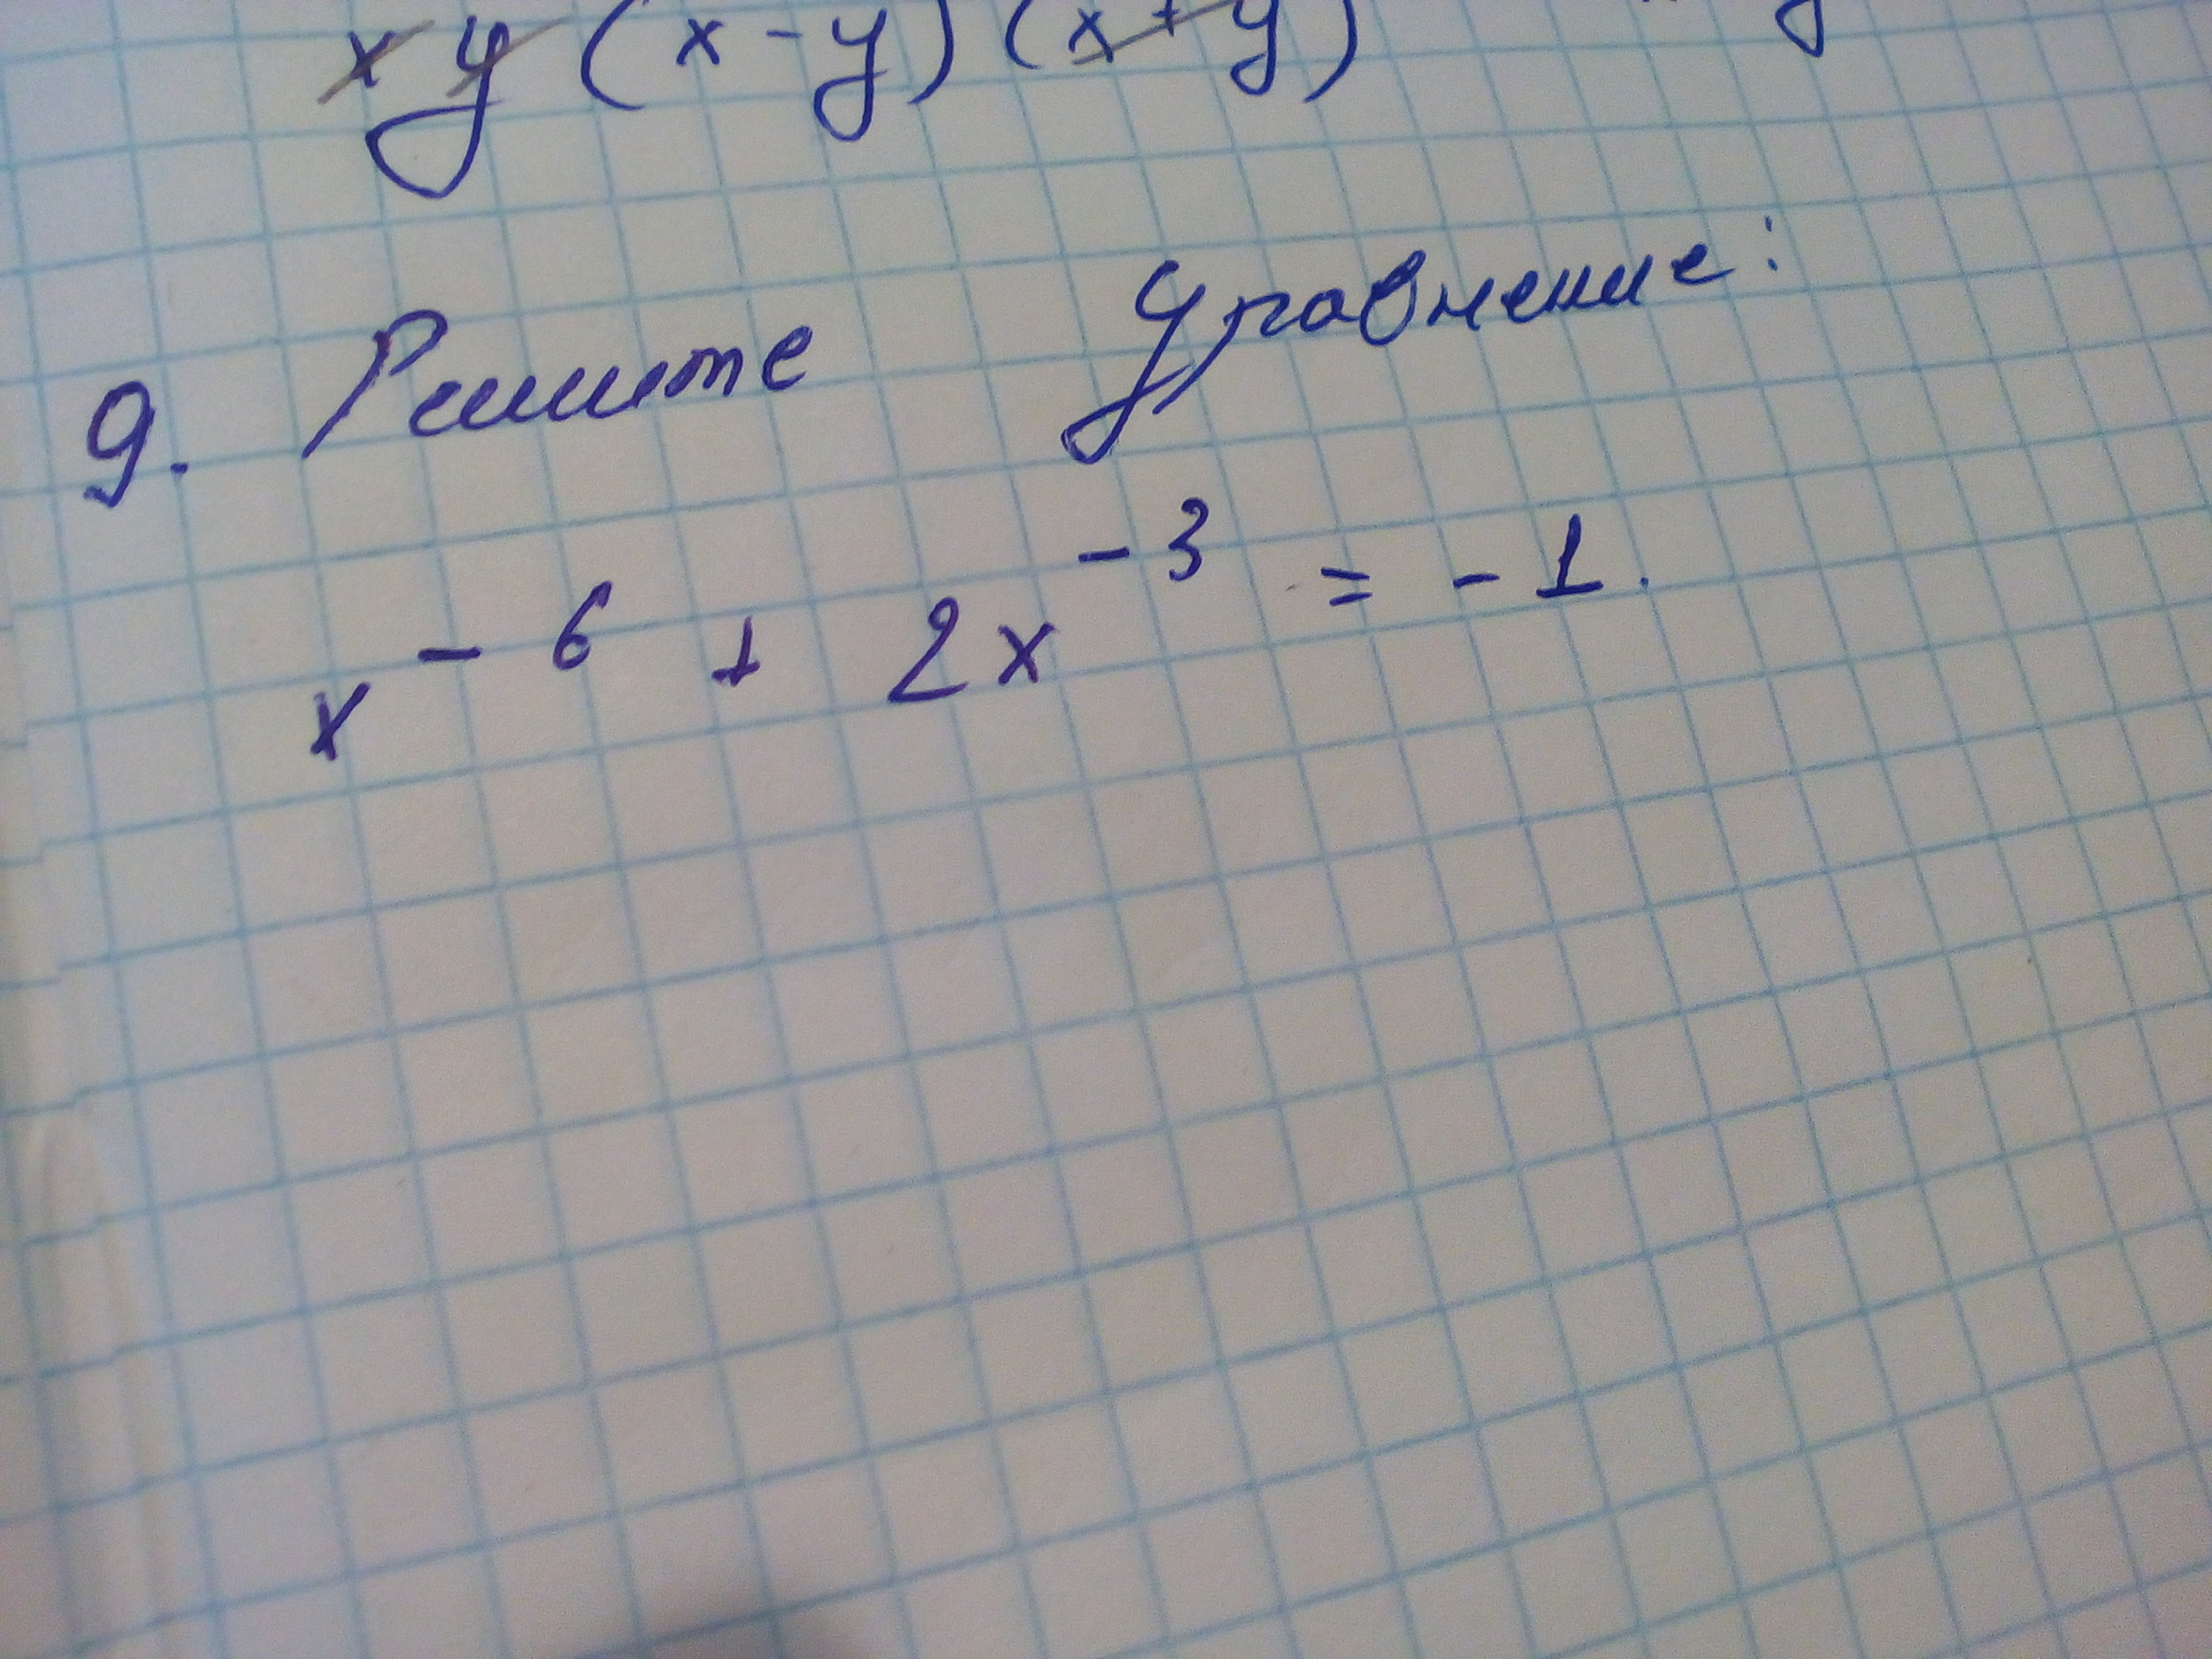 xy(x-y)(x+y)
9. Решите уравнение:
x⁻⁶ + 2x⁻³ = -1.